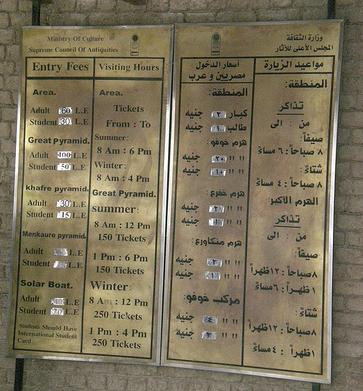 Ministry Of Culture
Supreme Council Of Antiquities
Entry Fees
Visiting Hours
Area.
Adult 60 L.E
Student 30 L.E
Great Pyramid.
Adult 100 L.E
Student 50 L.E
khafre pyramid.
Adult 30 L.E
Student 15 L.E
Menkaure pyramid.
Adult L.E
Student L.E
Solar Boat.
Adult L.E
Student L.E
Students Should Have
International Student
Card
Area.
Tickets
From : To
Summer:
8 Am : 6 Pm
Winter:
8 Am : 4 Pm
Great Pyramid.
summer:
8 Am : 12 Pm
150 Tickets
1 Pm : 6 Pm
150 Tickets
Winter:
8 Am : 12 Pm
250 Tickets
1 Pm : 4 Pm
250 Tickets
وزارة الثقافة
المجلس الأعلى للآثار
مواعيد الزيارة
أسعار الدخول
مصريين و عرب
المنطقة:
تذاكر
من : الى
صيفاً:
٨ صباحاً : ٦ مساءً
شتاءً:
٨ صباحاً : ٤ مساءً
الهرم الأكبر
تذاكر
من : الى
صيفاً:
٨ صباحاً : ١٢ ظهراً
١ ظهراً : ٦ مساءً
شتاءً:
٨ صباحاً : ١٢ ظهراً
١ ظهراً : ٤ مساءً
المنطقة:
كبار ٢ جنيه
طالب ١ جنيه
هرم خوفو:
" " جنيه
" " جنيه
هرم خفرع:
" " جنيه
" " جنيه
هرم منكاورع:
" " جنيه
" " جنيه
مركب خوفو:
" " جنيه
" " جنيه